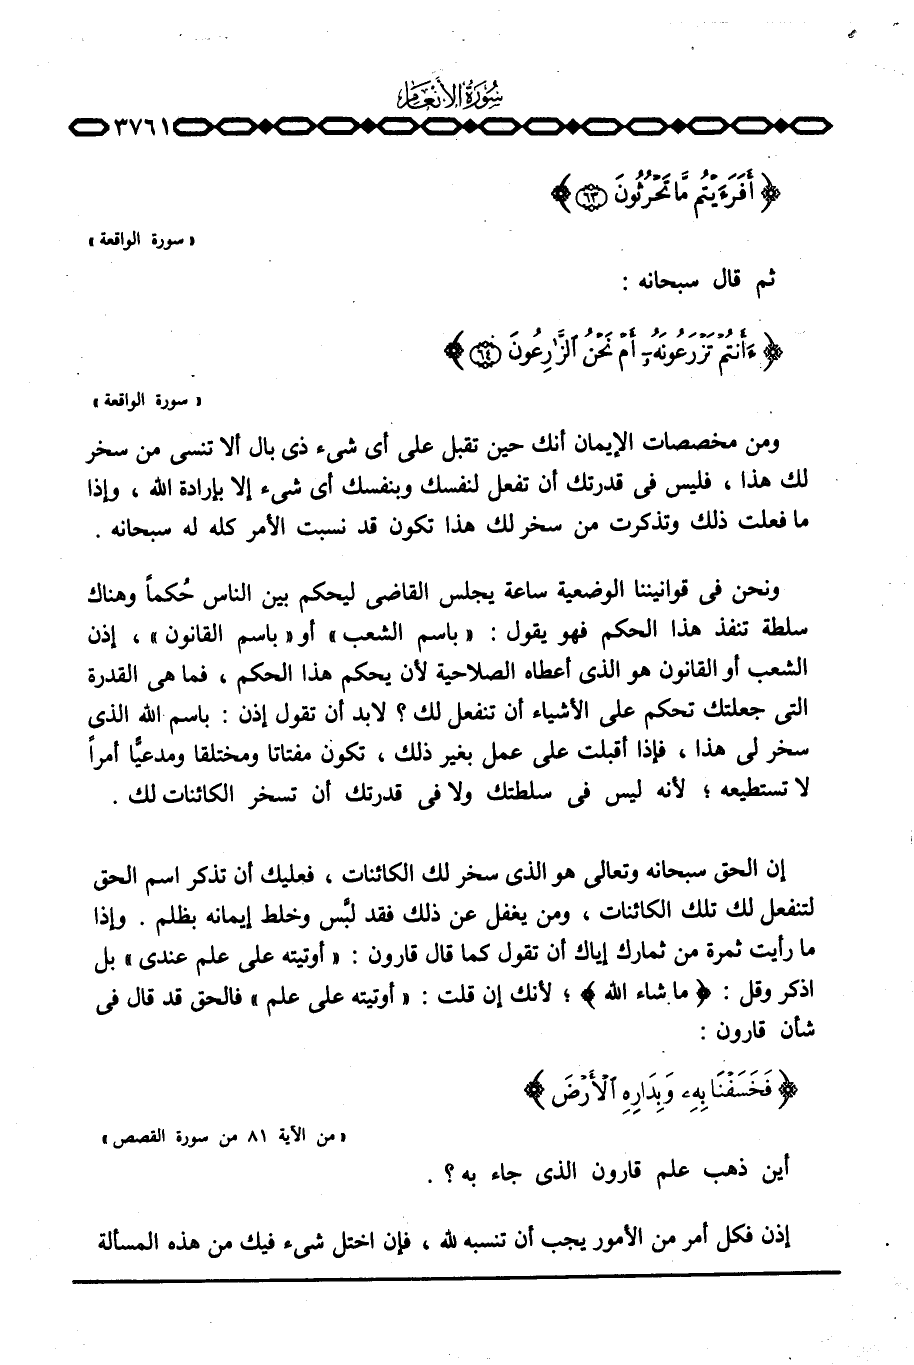 سورة الأنعام
٣٧٦١
﴿ أَفَرَءَيْتُم مَّا تَحْرُثُونَ ٦٣ ﴾
« سورة الواقعة »
ثم قال سبحانه :
﴿ ءَأَنتُمْ تَزْرَعُونَهُۥٓ أَمْ نَحْنُ ٱلزَّٰرِعُونَ ٦٤ ﴾
« سورة الواقعة »
ومن مخصصات الإيمان أنك حين تقبل على أى شىء ذى بال ألا تنسى من سخر
لك هذا ، فليس فى قدرتك أن تفعل لنفسك وبنفسك أى شىء إلا بإرادة الله ، وإذا
ما فعلت ذلك وتذكرت من سخر لك هذا تكون قد نسبت الأمر كله له سبحانه .
ونحن فى قوانيننا الوضعية ساعة يجلس القاضى ليحكم بين الناس حُكماً وهناك
سلطة تنفذ هذا الحكم فهو يقول : « باسم الشعب » أو « باسم القانون » ، إذن
الشعب أو القانون هو الذى أعطاه الصلاحية لأن يحكم هذا الحكم ، فما هى القدرة
التى جعلتك تحكم على الأشياء أن تنفعل لك ؟ لابد أن تقول إذن : باسم الله الذى
سخر لى هذا ، فإذا أقبلت على عمل بغير ذلك ، تكون مفتاتا ومختلقا ومدعيًّا أمراً
لا تستطيعه ؛ لأنه ليس فى سلطتك ولا فى قدرتك أن تسخر الكائنات لك .
إن الحق سبحانه وتعالى هو الذى سخر لك الكائنات ، فعليك أن تذكر اسم الحق
لتنفعل لك تلك الكائنات ، ومن يغفل عن ذلك فقد لبَّس وخلط إيمانه بظلم . وإذا
ما رأيت ثمرة من ثمارك إياك أن تقول كما قال قارون : « أوتيته على علم عندى » بل
اذكر وقل : ﴿ ما شاء الله ﴾ ؛ لأنك إن قلت : « أوتيته على علم » فالحق قد قال فى
شأن قارون :
﴿ فَخَسَفْنَا بِهِۦ وَبِدَارِهِ ٱلْأَرْضَ ﴾
« من الآية ٨١ من سورة القصص »
أين ذهب علم قارون الذى جاء به ؟ .
إذن فكل أمر من الأمور يجب أن تنسبه لله ، فإن اختل شىء فيك من هذه المسألة